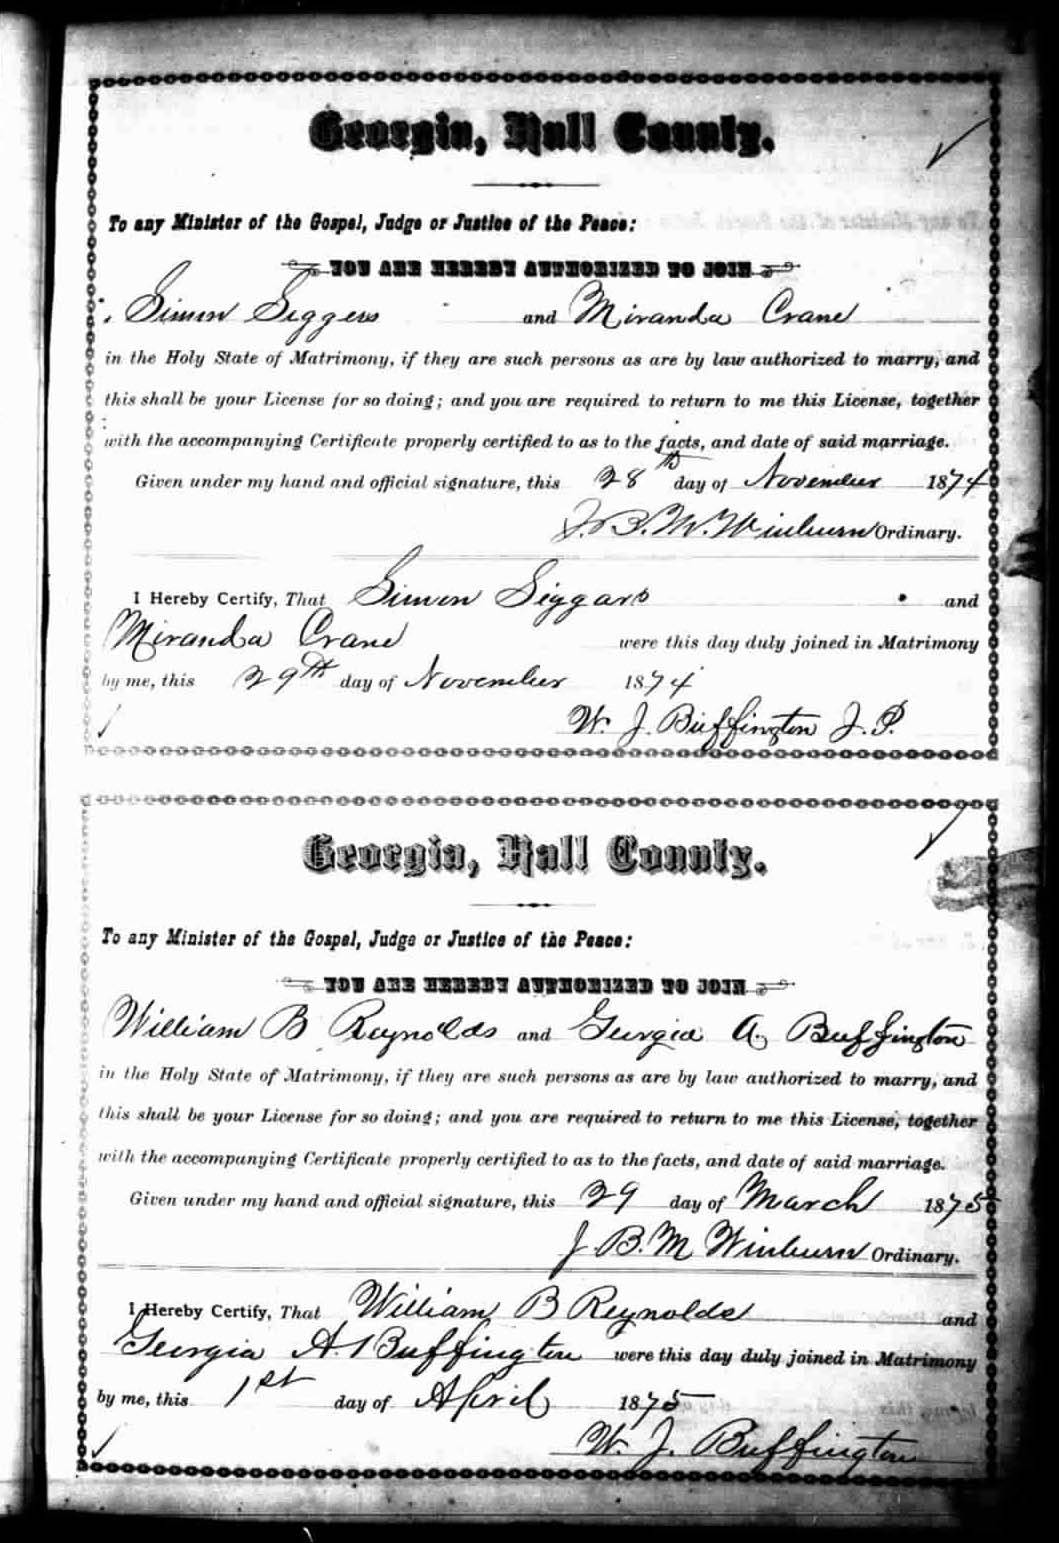 Georgia, Hall County.
To any Minister of the Gospel, Judge or Justice of the Peace:
YOU ARE HEREBY AUTHORIZED TO JOIN
Simon Siggers and Miranda Crane
in the Holy State of Matrimony, if they are such persons as are by law authorized to marry, and
this shall be your License for so doing; and you are required to return to me this License, together
with the accompanying Certificate properly certified to as to the facts, and date of said marriage.
Given under my hand and official signature, this 28th day of November 1874
J. B. M. Winburn Ordinary.
I Hereby Certify, That Simon Siggars and
Miranda Crane were this day duly joined in Matrimony
by me, this 29th day of November 1874
W. J. Buffington J. P.
Georgia, Hall County.
To any Minister of the Gospel, Judge or Justice of the Peace:
YOU ARE HEREBY AUTHORIZED TO JOIN
William B Reynolds and Georgia A. Buffington
in the Holy State of Matrimony, if they are such persons as are by law authorized to marry, and
this shall be your License for so doing; and you are required to return to me this License, together
with the accompanying Certificate properly certified to as to the facts, and date of said marriage.
Given under my hand and official signature, this 29 day of March 1875
J B. M Winburn Ordinary.
I Hereby Certify, That William B Reynolds and
Georgia A. Buffington were this day duly joined in Matrimony
by me, this 1st day of April 1875
W. J. Buffington